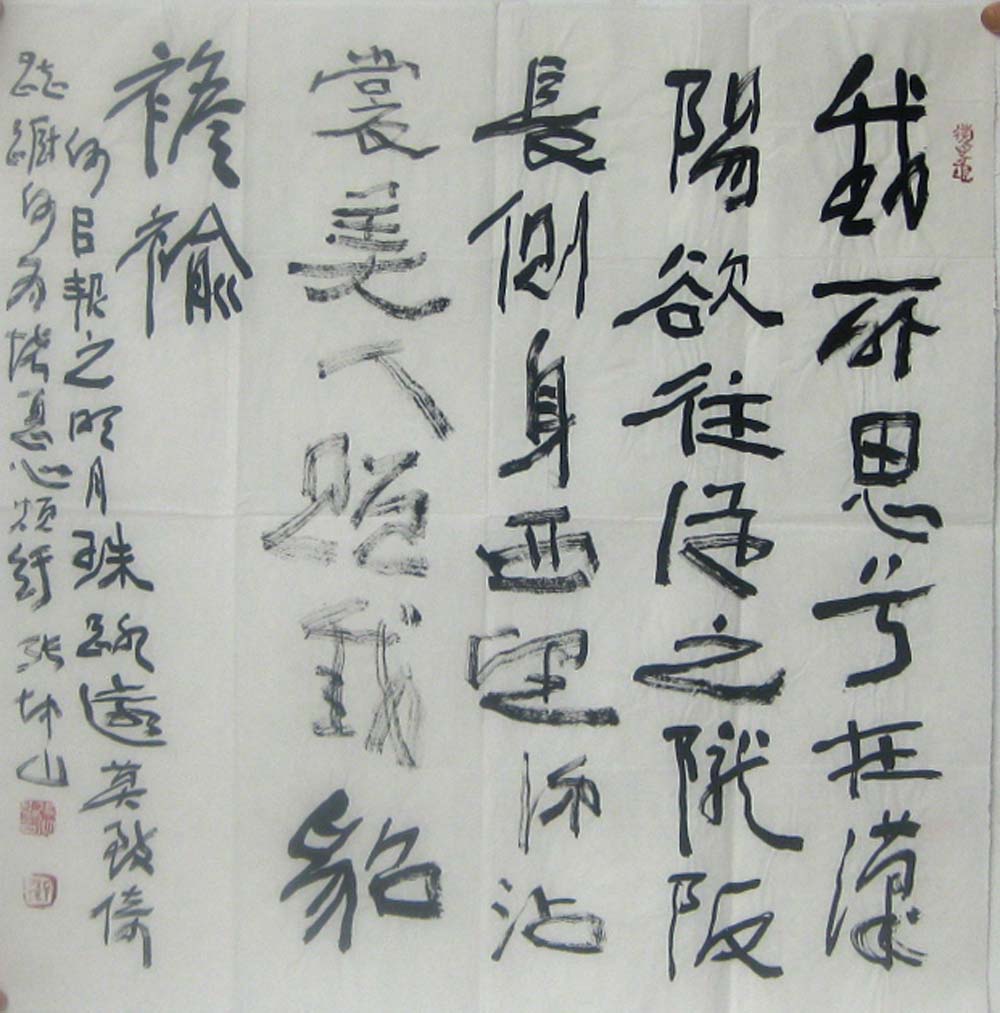 我所思兮在漢
陽欲往從之隴阪
長側身西望涕沾
裳美人贈我貂
襜褕
何以報之明月珠路遠莫致倚
踟躕何為懷憂心煩紆 张坤山